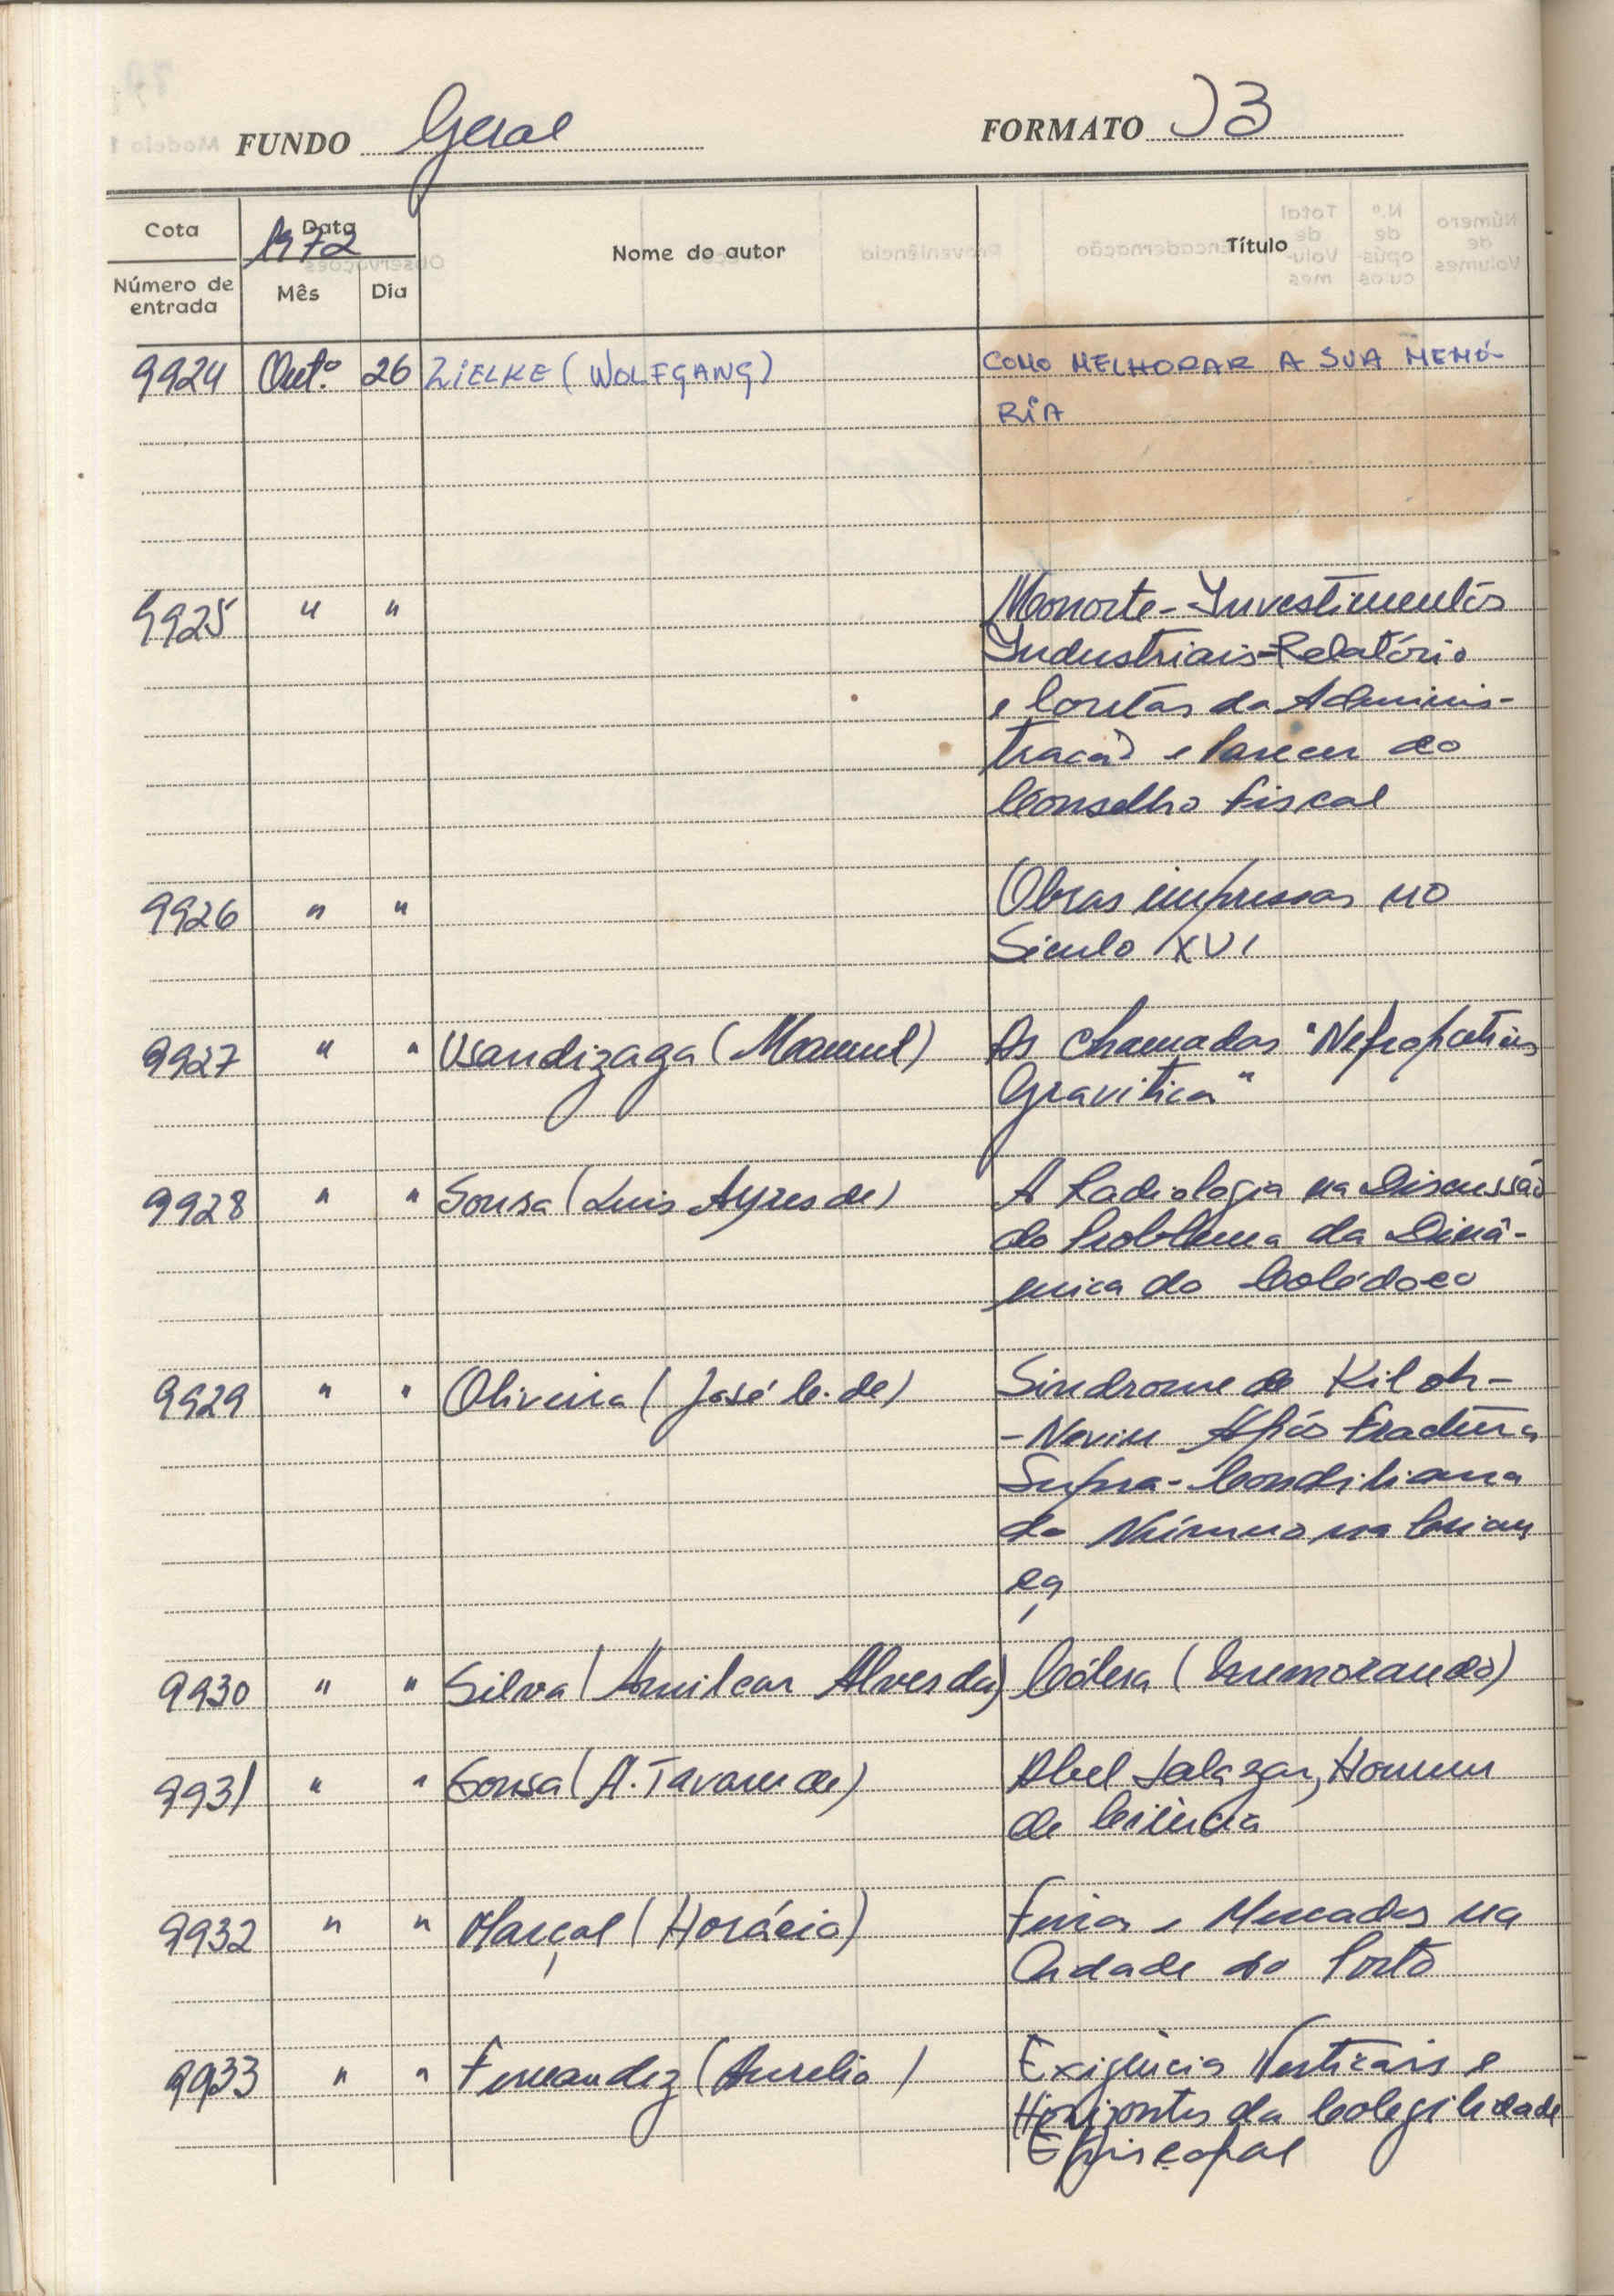 FUNDO Geral FORMATO J3
Cota Data 1972 Nome do autor Título
Número de entrada Mês Dia
9924 Out.º 26 ZIELKE (WOLFGANG) COMO MELHORAR A SUA MEMÓ-
RIA
9925 " " Monorte-Investimentos
Industriais-Relatório
e Contas da Adminis-
tração e Parecer do
Conselho Fiscal
9926 " " Obras impressas no
Século XVI
9927 " " Usandizaga (Manuel) As chamadas "Nefropatias
Gravitica"
9928 " " Sousa (Luis Ayres de) A Radiologia na Discussão
do Problema da Dinâ-
mica do Colédoco
9929 " " Oliveira (José C. de) Sindrome de Kiloh-
-Nevin Após Fractura
Supra-Condiliana
do Número na Crian
ça
9930 " " Silva (Amilcar Alves da) Cólera (Memorando)
9931 " " Sousa (A. Tavares de) Abel Salazar, Homem
de Ciência
9932 " " Marçal (Horácio) Feiras e Mercados na
Cidade do Porto
9933 " " Fernandez (Aurelio) Exigência Verticais e
Horizontes da Colegilidade
Episcopal